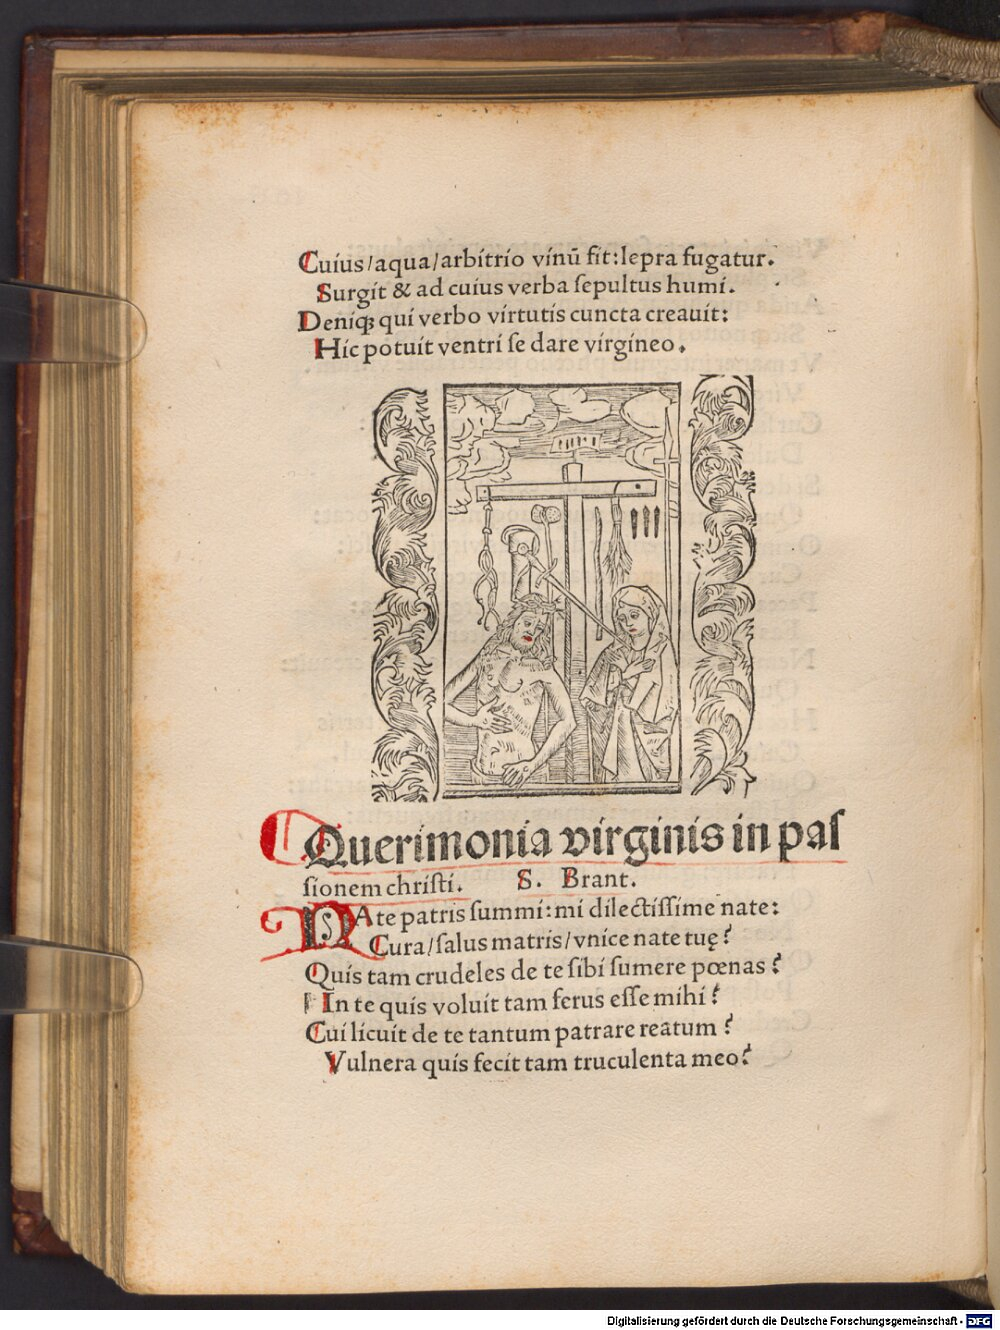 Cuius/aqua/arbitrio vinū fit:lepra fugatur.
Surgit & ad cuius verba sepultus humi.
Deniqꝫ qui verbo virtutis cuncta creauit:
Hic potuit ventri se dare virgineo.
Querimonia virginis in paſ
ſionem chriſti. S. Brant.
NAte patris ſummi:mi dilectiſſime nate:
Cura/ſalus matris/vnice nate tuę?
Quis tam crudeles de te ſibi ſumere pœnas?
In te quis voluit tam ferus eſſe mihi?
Cui licuit de te tantum patrare reatum?
Vulnera quis fecit tam truculenta meo?
Digitalisierung gefördert durch die Deutsche Forschungsgemeinschaft - DFG